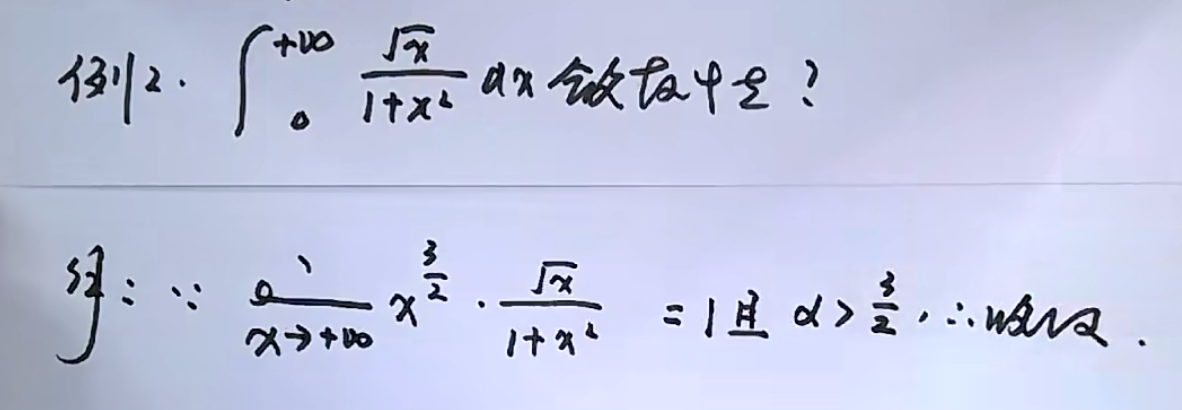 例2. ∫₀^{+∞} \frac{√x}{1+x²} dx 敛散性?
解: ∵ lim_{x→+∞} x^{\frac{3}{2}} · \frac{√x}{1+x²} = 1 且 α > \frac{3}{2}, ∴ 收敛.